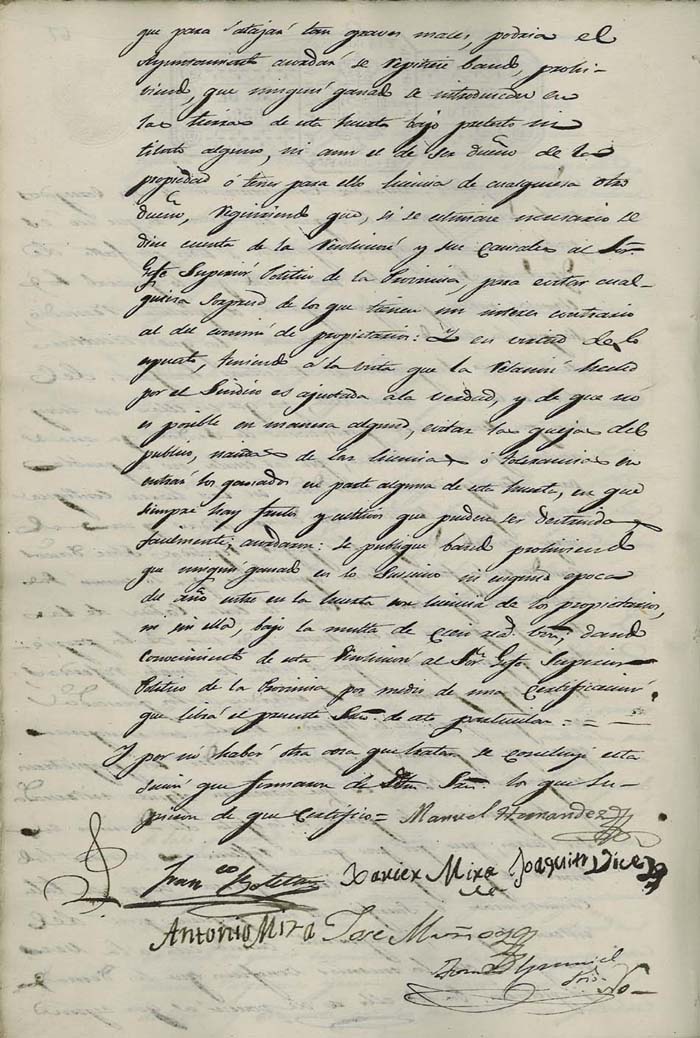 que para atajar tan graves males, podria el
Ayuntamiento acordar se repitiere bando, prohi-
viendo, que ningun ganado se introduzcan en
las tierras de esta huerta bajo pretesto ni
titulo alguno, ni aun el de ser dueño de la
propiedad ó tener para ello licencia de cualquiera otro
dueño, requiriendo que, si se estimare necesario se
diese cuenta de la resolucion y sus causales al Sor.
Gefe Superior Politico de la Provincia, para evitar cual-
quiera sorpresa de los que tienen un interes contrario
al del comun de propietarios: Y en virtud de lo
espuesto, teniendo á la vista que la relacion hecha
por el Sindico es ajustada á la verdad, y de que no
es posible en manera alguna, evitar las quejas del
publico, nacidas de las licencias o tolerancias en
entrar los ganados en parte alguna de esta huerta, en que
siempre hay frutos y cultivos que pueden ser destruidos
facilmente; acordaron: se publique bando prohiviendo
que ningun ganado en lo sucesivo ni en epoca
del año entre en la huerta con licencia de los propietarios,
ni sin ella, bajo la multa de cien rs. von; dando
conocimiento de esta resolucion al Sor. Gefe Superior
Politico de la Provincia por medio de una certificacion
que librá el presente Srio. de este particular = = =
Y por no haber otra cosa que tratar se concluyó esta
sesion que firmaron de dhos. Sres. los que su-
pieron de que certifico = Manuel Hernandez
Franco Xavier Mira Joaquin Vice
Antonio Mira Jose Muñoz
Srio.